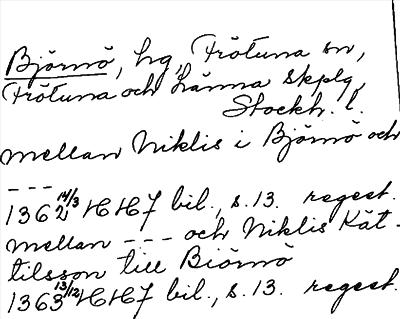 Björnö, hg, Frötuna sn,
Frötuna och Länna skplg,
Stockh. l.
mellan Niklis i Björnö och
---
1362 14/3 HH7 bil., s. 13. regest.
mellan --- och Niklis Kät-
tilsson till Biörnö
1363 13/12 HH7 bil., s. 13. regest.